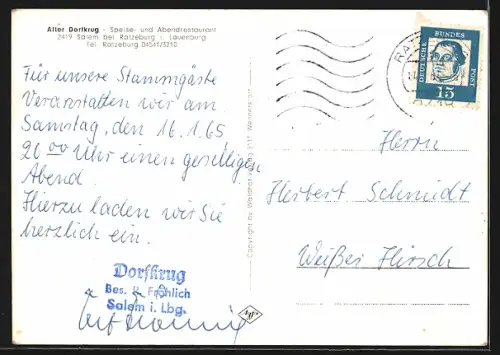 Alter Dorfkrug - Speise- und Abendrestaurant
2419 Salem bei Ratzeburg i. Lauenburg
Tel. Ratzeburg 04541/3210
Für unsere Stammgäste
Veranstalten wir am
Samstag, den 16.1.65
20 00 Uhr einen geselligen
Abend.
Hierzu laden wir Sie
herzlich ein.
Dorfkrug
Bes. Fröhlich
Salem i. Lbg.
Copyright by
DEUTSCHE BUNDES POST
15
Herrn
Herbert Schmidt
Weißer Hirsch